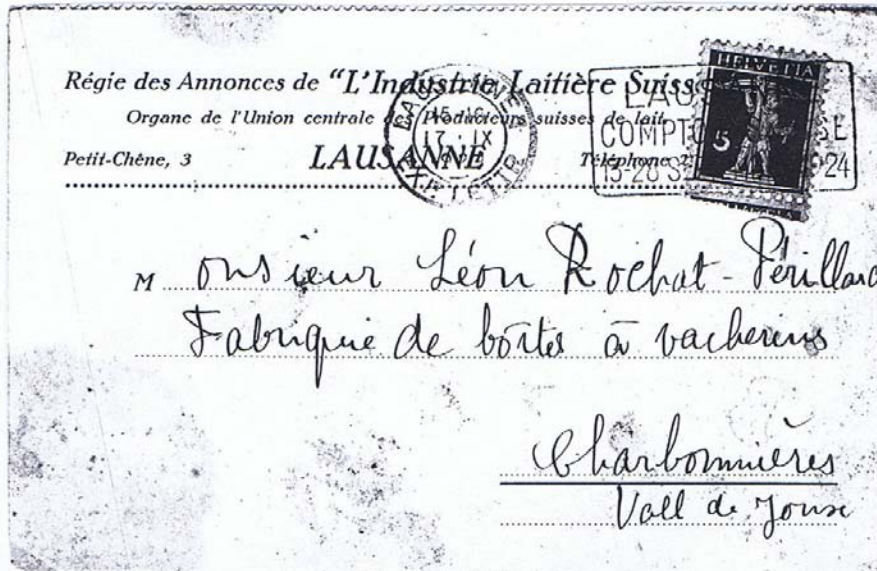 Régie des Annonces de "L'Industrie Laitière Suisse
Organe de l'Union centrale des Producteurs suisses de lait
Petit-Chêne, 3 LAUSANNE Téléphone
HELVETIA
5
17. IX
LAUS
COMPTO
13-28 S 24
Monsieur Léon Rochat-Périllard
Fabrique de boîtes à vacherins
Charbonnières
Vall de Joux